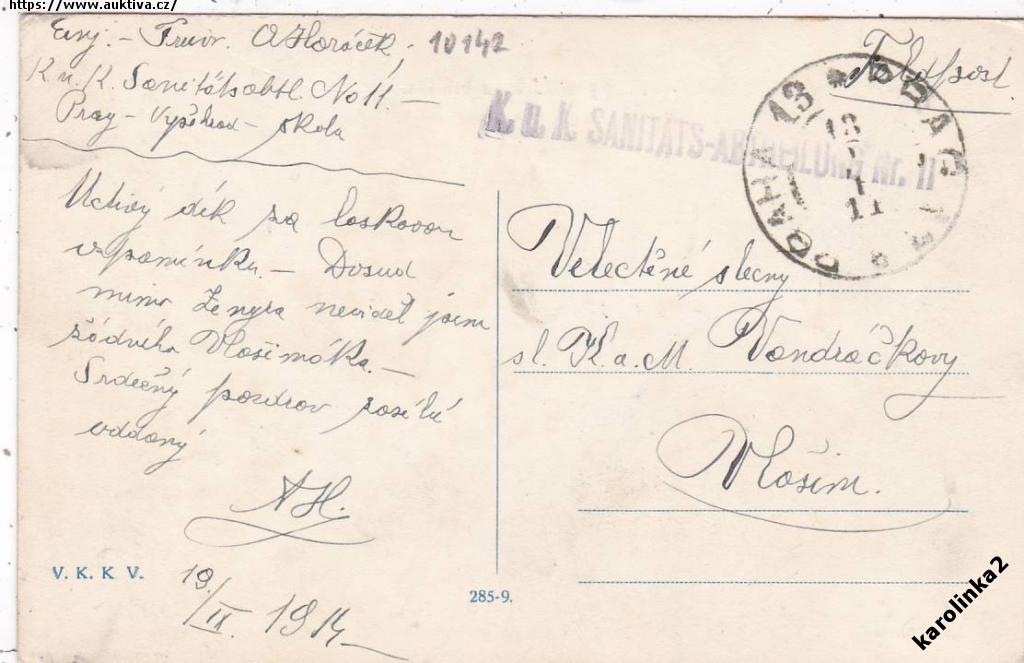 https://www.auktiva.cz/
Einj. - Freiw. A Horáček.
10142
K. u. K. Sanitätsabtl. No 11. -
Prag - Vyšehrad - škola
Feldpost
K. u. K. SANITÄTS-ABTHEILUNG Nr. 11
PRAHA 13
Uctivý dík za laskavou
vzpomínku. - Dosud
mimo neviděl jsem
žádného Vlašimáka. -
Srdečný pozdrav zasílá
oddaný
AH.
19./II. 1914
Velectěné slečny
sl. K. a M. Vondráčkovy
Vlašim.
V. K. K V.
285-9.
karolinka2